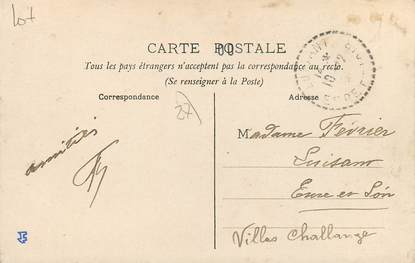 lot
CARTE POSTALE
Tous les pays étrangers n'acceptent pas la correspondance au recto.
(Se renseigner à la Poste)
Correspondance
Adresse
27
amitiés
Madame Février
Luisant
Eure et Loir
Villa Challange